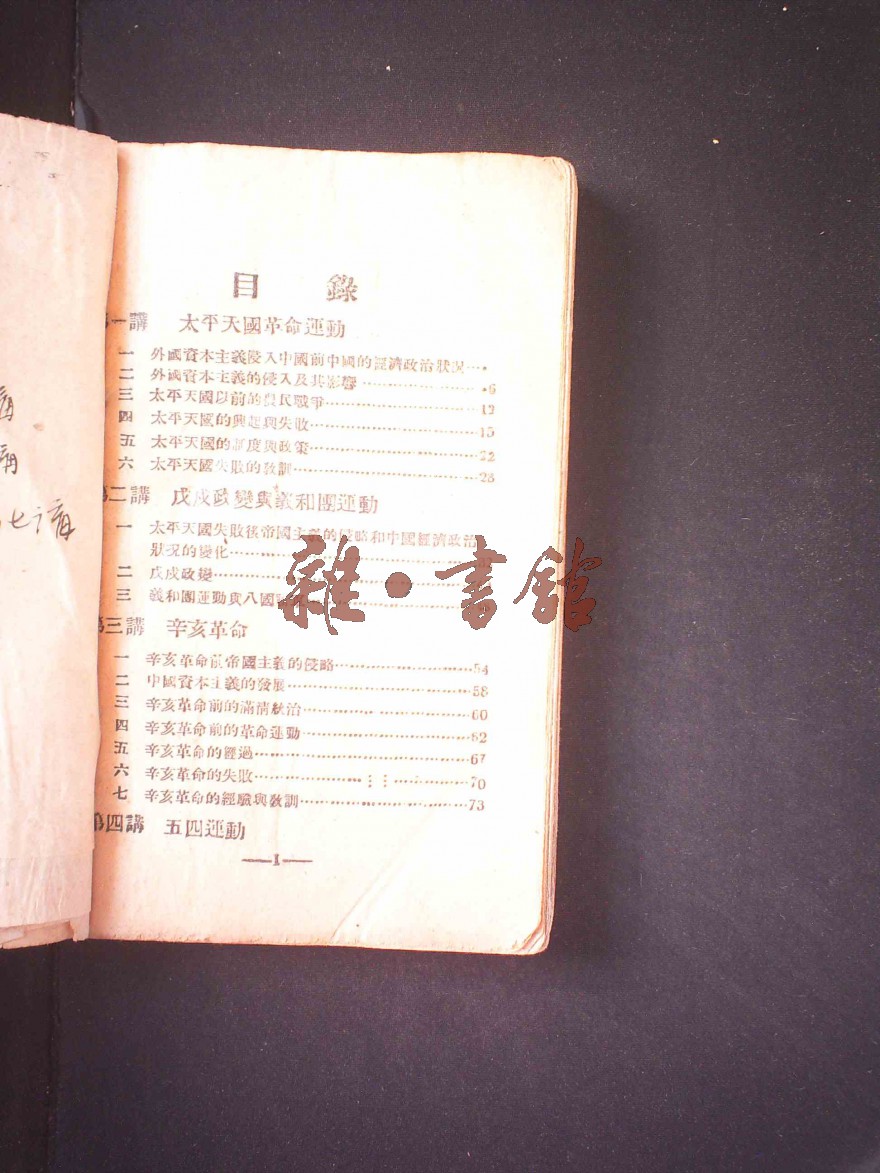 目 錄
第一講 太平天國革命運動
一 外國資本主義侵入中國前中國的經濟政治狀況…
二 外國資本主義的侵入及其影響……6
三 太平天國以前的農民戰爭……12
四 太平天國的興起與失敗……15
五 太平天國的制度與政策……22
六 太平天國失敗的教訓……28
第二講 戊戌政變與義和團運動
一 太平天國失敗後帝國主義的侵略和中國經濟政治
狀況的變化……
二 戊戌政變……
三 義和團運動與八國
第三講 辛亥革命
一 辛亥革命前帝國主義的侵略……54
二 中國資本主義的發展……58
三 辛亥革命前的滿清統治……60
四 辛亥革命前的革命運動……62
五 辛亥革命的經過……67
六 辛亥革命的失敗……70
七 辛亥革命的經驗與教訓……73
第四講 五四運動
—1—
雜·書館